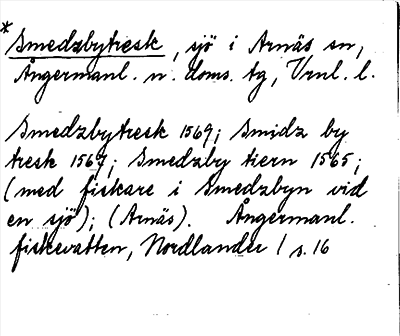 * Smedzbytresk, sjö i Arnäs sn,
Ångermanl. n. doms. tg, Vrnl. l.
Smedzbytresk 1569; Smidz by
tresk 1567; Smedzby tiern 1565;
(med fiskare i Smedzbyn vid
en sjö); (Arnäs). Ångermanl.
fiskevatten, Nordlander / s. 16